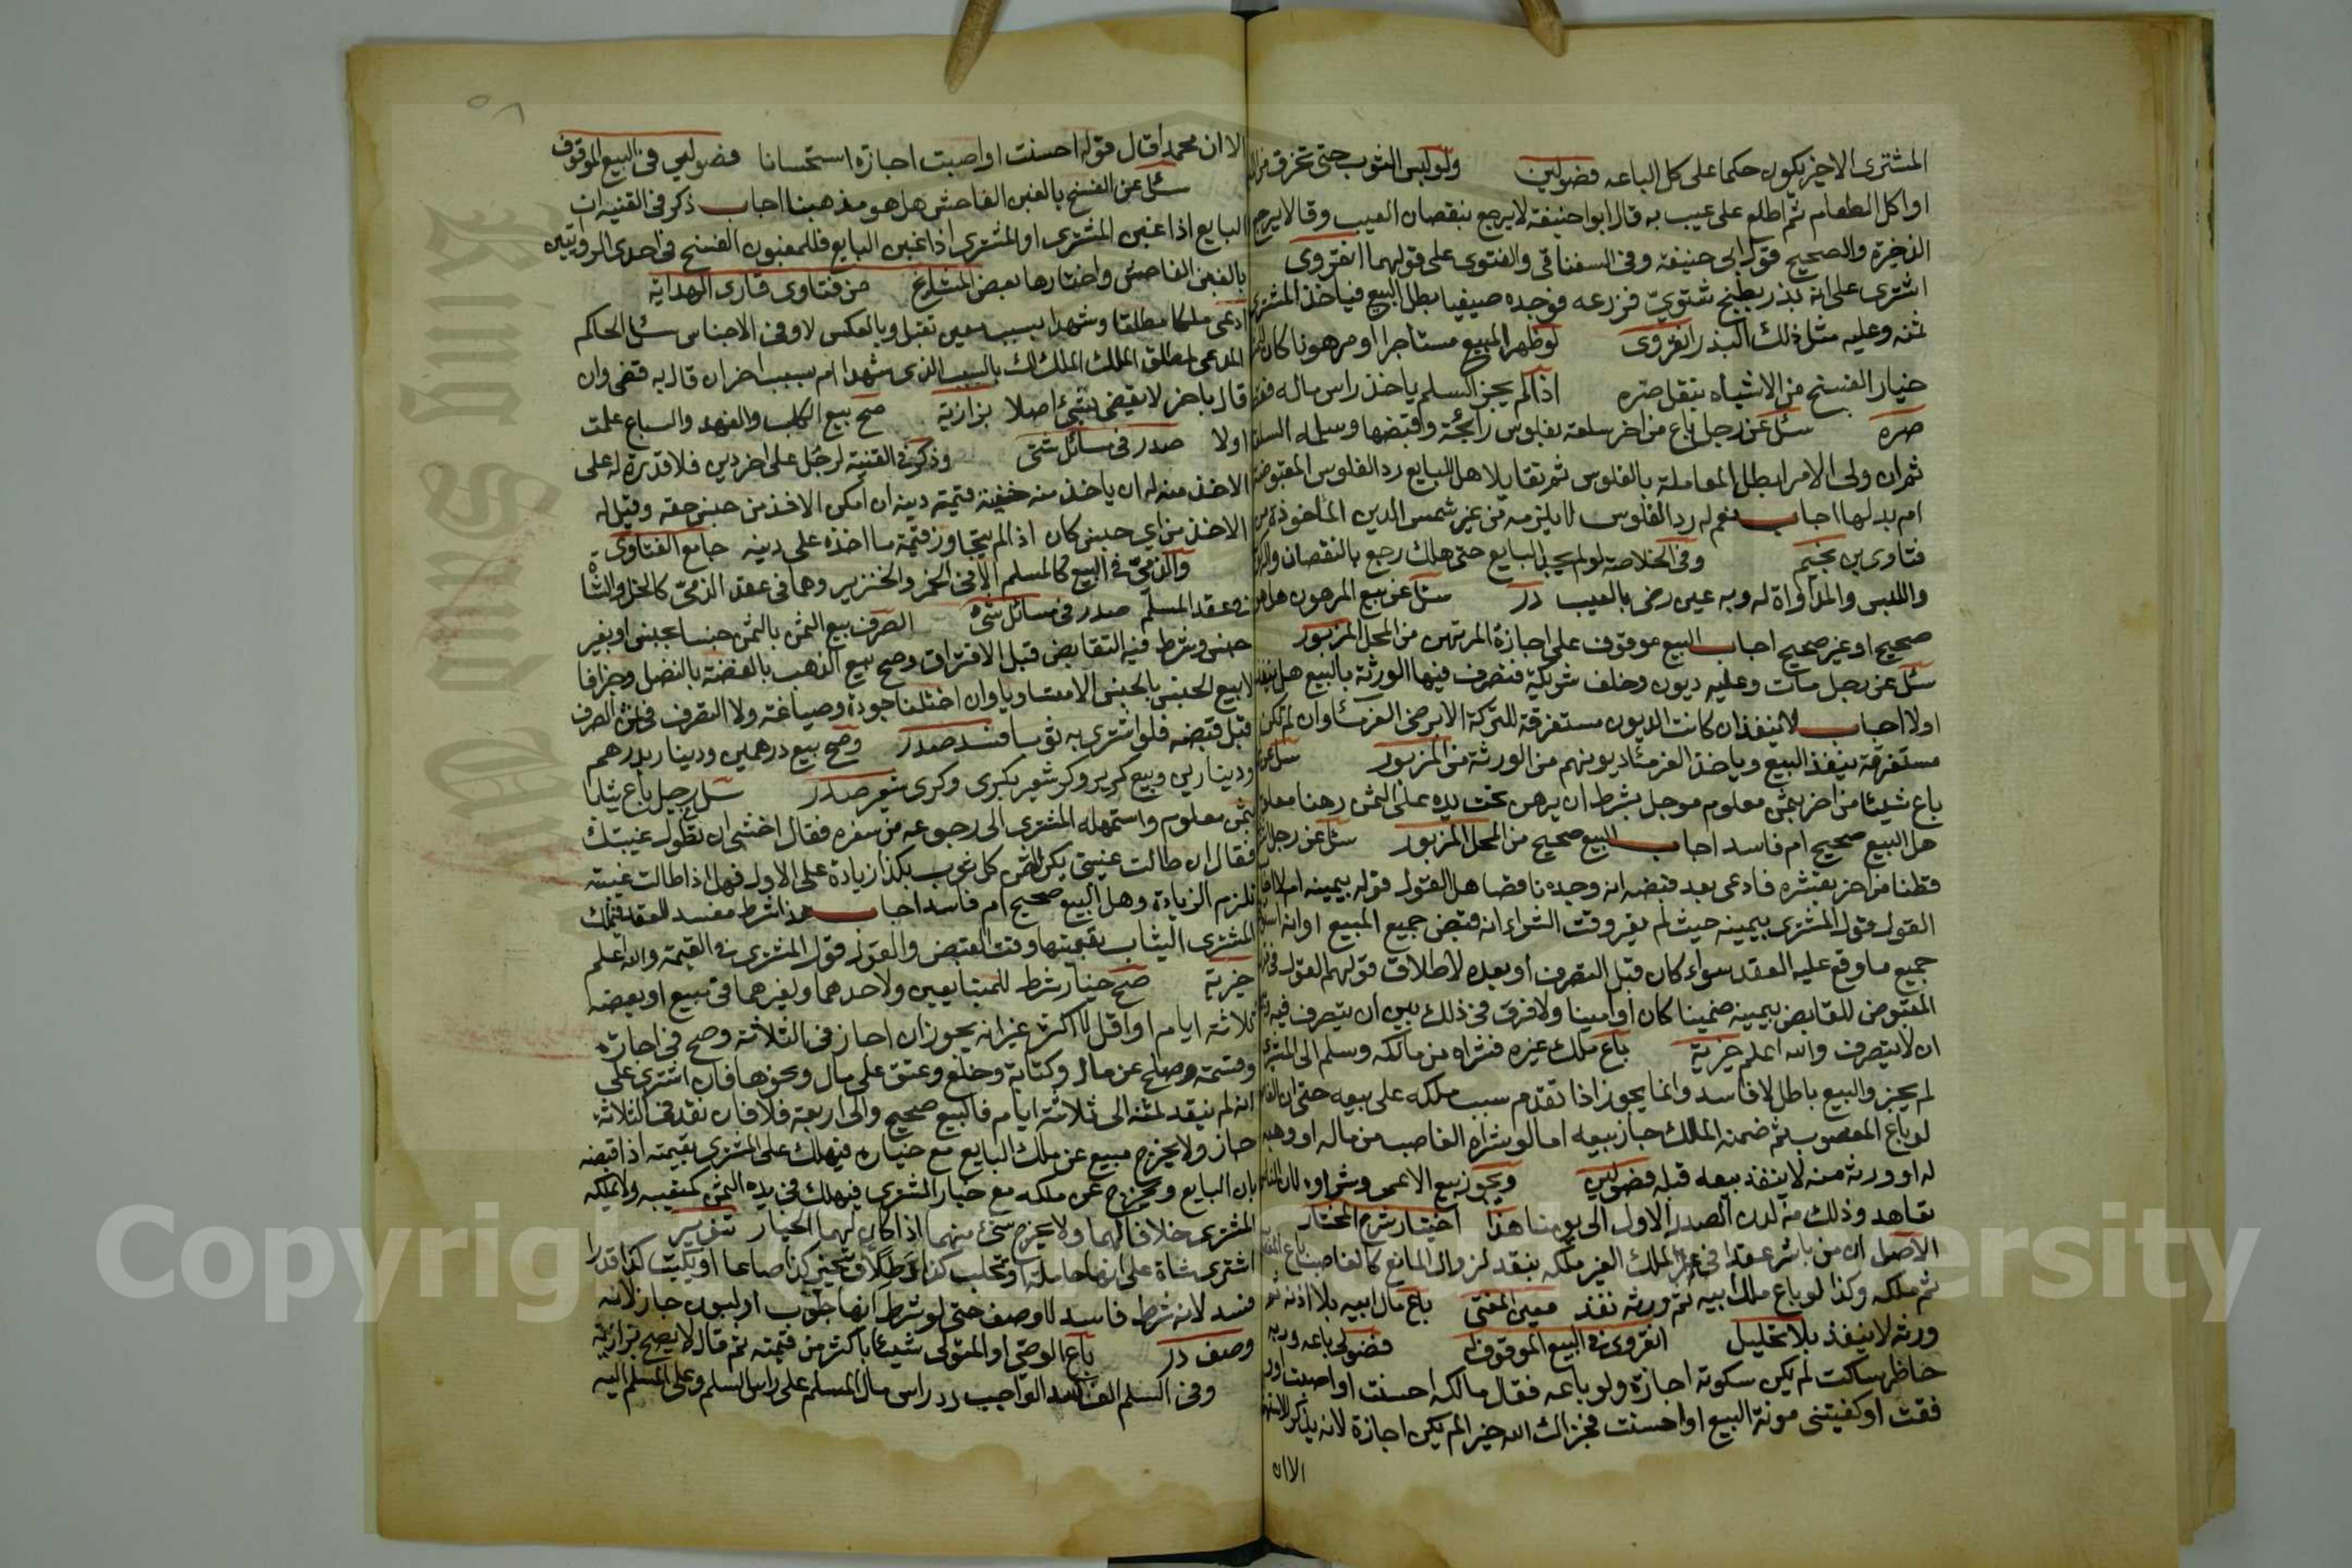 المشترى الاخير يكون حكما على كل الباعه فضولين ولو لبس الثوب حتى تخرق من
او اكل الطعام ثم اطلع على عيب به قال ابو احنيفة لا يرجع بنقصان العيب وقالا يرجع
الذخيرة والصحيح قول ابى حنيفة وفى السغناقى والفتوى على قولهما انقروى
اشترى على انه بذر بطيخ شتوىّ فزرعه فوجده صيفيا بطل البيع فياخذ المشترى
ثمنه وعليه مثل ذلك البذر انقروى لو ظهر المبيع مستاجرا او مرهونا كان
خيار الفسخ من الاشباه بنقل صره اذا لم يجز السلم ياخذ راس ماله
صره سئل عن رجل باع من اخر سلعة بفلوس رائجة وقبضها وسلمه السلعة
ثم ان ولى الامر ابطل المعاملة بالفلوس ثم تقايلا هل للبايع رد الفلوس المقبوضة
ام بدلها اجاب نعم له رد الفلوس لا يلزمه من غير شمس الدين الماخوذة من
فتاوى بن نجيم وفى الخلاصة لو لم يجد البايع حتى هلك رجع بالنقصان
واللبس والمداواة له وبه عين رضى بالعيب درر سئل عن بيع المرهون هل هو
صحيح او غير صحيح اجاب البيع موقوف على اجازة المرتهن من المحل المزبور
سئل عن رجل مات وعليه ديون وخلف شركة فتصرف فيها الورثة بالبيع هل ينفذ
اولا اجاب لا ينفذ ان كانت الديون مستغرقة للتركة الا برضى الغرمئا وان لم تكن
مستغرقة ينفذ البيع وياخذ الغرمئا ديونهم من الورثة من المزبور سئل عن
باع شيئا من اخر بثمن معلوم موجل بشرط ان يرهن تحت يده على الثمن رهنا معلوم
هل البيع صحيح ام فاسد اجاب البيع صحيح من المحل المزبور سئل عن رجل
قطنا من اخر بقشره فادعى بعد قبضه انه وجده ناقصا هل القول قوله بيمينه ام لا
القول قول المشترى بيمينه حيث لم يقر وقت الشراء انه قبض جميع المبيع او انه
جميع ما وقع عليه العقد سواء كان قبل التصرف او بعده لاطلاق قولهم القول فى
المقبوض للقابض بيمينه ضمينا كان او امينا ولا فرق فى ذلك بين ان يتصرف فيه
ان لا يتصرف والله اعلم خيرية باع ملك غيره فشراه من مالكه وسلم الى المشترى
لم يجز والبيع باطل لا فاسد وانما يجوز اذا تقدم سبب ملكه على بيعه حتى ان
لو باع المغصوب ثم ضمنه المالك جاز بيعه اما لو شراه الغاصب من ماله او وهبه
له او ورثه منه لا ينفذ بيعه قبله فضولين ويجوز بيع الاعمى وشراوه لان الناس
تعاهد وذلك من لدن الصدر الاول الى يومنا هذا اختيار شرح المختار
الاصل ان من باشر عقدا فى الملك الغير ملكه ينفذ لزوال المانع كالغاصب باع
ثم ملكه وكذا لو باع ملك ابيه ثم ورثه نفذ معين المفتى باع مال ابيه بلا اذنه ثم
ورثه لا ينفذ بلا تحليل انقروى فى البيع الموقوف فضولى باعه وربه
حاظر ساكت لم يكن سكوته اجازة ولو باعه فقال مالكه احسنت او اصبت او
فقت او كفيتنى مونة البيع او احسنت فجزاك الله خير الم يكن اجازة لانه يذكر
الا ان
٥٨
الا ان محمدا قال قوله احسنت او اصبت اجازة استحسانا فضولين فى البيع الموقوف
سئل عن الفسخ بالغبن الفاحش هل هو مذهبنا اجاب ذكر فى القنية ان
البايع اذا غبن المشترى او المشترى اذا غبن البايع فللمغبون الفسخ فى احدى الروايتين
بالغبن الفاحش واختارها بعض المشايخ من فتاوى قارى الهداية
ادعى ملكا مطلقا وشهدا بسبب معين تقبل وبالعكس لا وفى الاجناس سئل الحاكم
المدعى لمطلق الملك الملك لك بالسبب الذى شهدا ام بسبب اخر ان قال به قضى وان
قال باخر لا يقضى بشئ اصلا بزازية صح بيع الكلب والفهد والسباع علمت
اولا صدر فى مسائل شتى وذكر فى القنية لرجل على اخر دين فلا قدرة له على
الاخذ منه له ان ياخذ منه خفية قيمة دينه ان امكن الاخذ من جنس حقه وقيل له
الاخذ من اي جنس كان اذا لم يتجاوز قيمة ما اخذه على دينه جامع الفتاوى
والذمىّ فى البيع كالمسلم الا فى الخمر والخنزير وهما فى عقد الذمىّ كالخل والشاة
فى عقد المسلم صدر فى مسائل شتى الصرف بيع الثمن بالثمن جنسا بجنس او بغير
جنس وشرط فيه التقابض قبل الافتراق وصح بيع الذهب بالفضة بالفضل وجزافا
لا بيع الجنس بالجنس الا متساويا وان اختلفا جودة وصياغة ولا التصرف فى ثمن الصرف
قبل قبضه فلو اشترى به ثوبا فسد صدر وصح بيع درهمين ودينار بدرهم
ودينارين وبيع كر بر وكر شعير بكرى وكرى شعير صدر سئل رجل باع ثيابا
بثمن معلوم واستمهله المشترى الى رجوعه من سفره فقال اخشى ان تطول غيبتك
فقال ان طالت غيبتى يكن الثمن كل ثوب بكذا زيادة على الاول فهل اذا طالت غيبته
تلزم الزيادة وهل البيع صحيح ام فاسد اجاب هذا شرط مفسد للعقد فيملك
المشترى الثياب بقيمتها وقت القبض والقول قول المشترى فى القيمة والله اعلم
خيرية صح خيار شرط للمتبايعين ولاحدهما ولغيرهما فى مبيع او بعضه
ثلاثة ايام او اقل لا اكثر غير انه يجوز ان اجاز فى الثلاثة وصح فى اجازة
وقسمة وصلح عن مال وكتابة وخلع وعتق على مال ونحوها فان اشترى على
انه لم ينقد ثمنه الى ثلاثة ايام فالبيع صحيح والى اربعة فلا فان نقد فى الثلاثة
جاز ولا يخرج مبيع عن ملك البايع مع خياره فيهلك على المشترى بقيمته اذا قبضه
باذن البايع ويخرج عن ملكه مع خيار المشترى فيهلك فى يده الثمن كتعيبه ولا يملكه
المشترى خلافا لهما ولا يخرج شئ منهما اذا كان لهما الخيار تنوير
اشترى شاة على انها حاملة او تحلب كذا رطلا او تخبز كذا صاعا او يكتب كذا قدرا
فسد لانه شرط فاسد لا وصف حتى لو شرط انها حلوب او لبون جاز لانه
وصف درر باع الوصى او المتولى شيئا باكثر من قيمته ثم قال لا يصح بزازية
وفى السلم الفاسد الواجب رد راس مال المسلم على راس السلم وعلى المسلم اليه
King Saud Un
Copyright © King Saud University